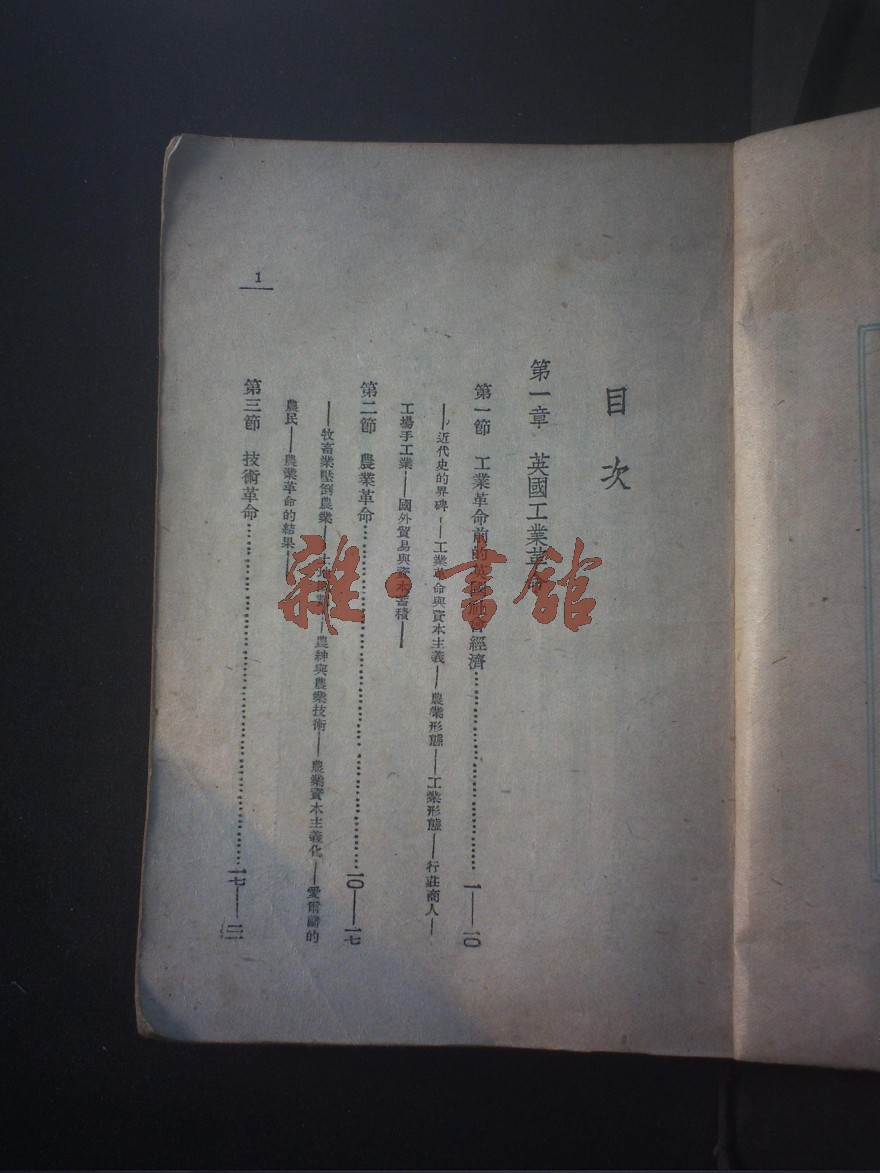 目次
第一章 英國工業革命
第一節 工業革命前的英國社會經濟……一——一〇
——近代史的界碑——工業革命與資本主義——農業形態——工業形態——行莊商人——
工場手工業——國外貿易與資本蓄積——
第二節 農業革命……一〇——一七
——牧畜業壓倒農業——農紳與農業技術——農業資本主義化——愛爾蘭的
農民——農業革命的結果——
第三節 技術革命……一七
1
雜·書舘